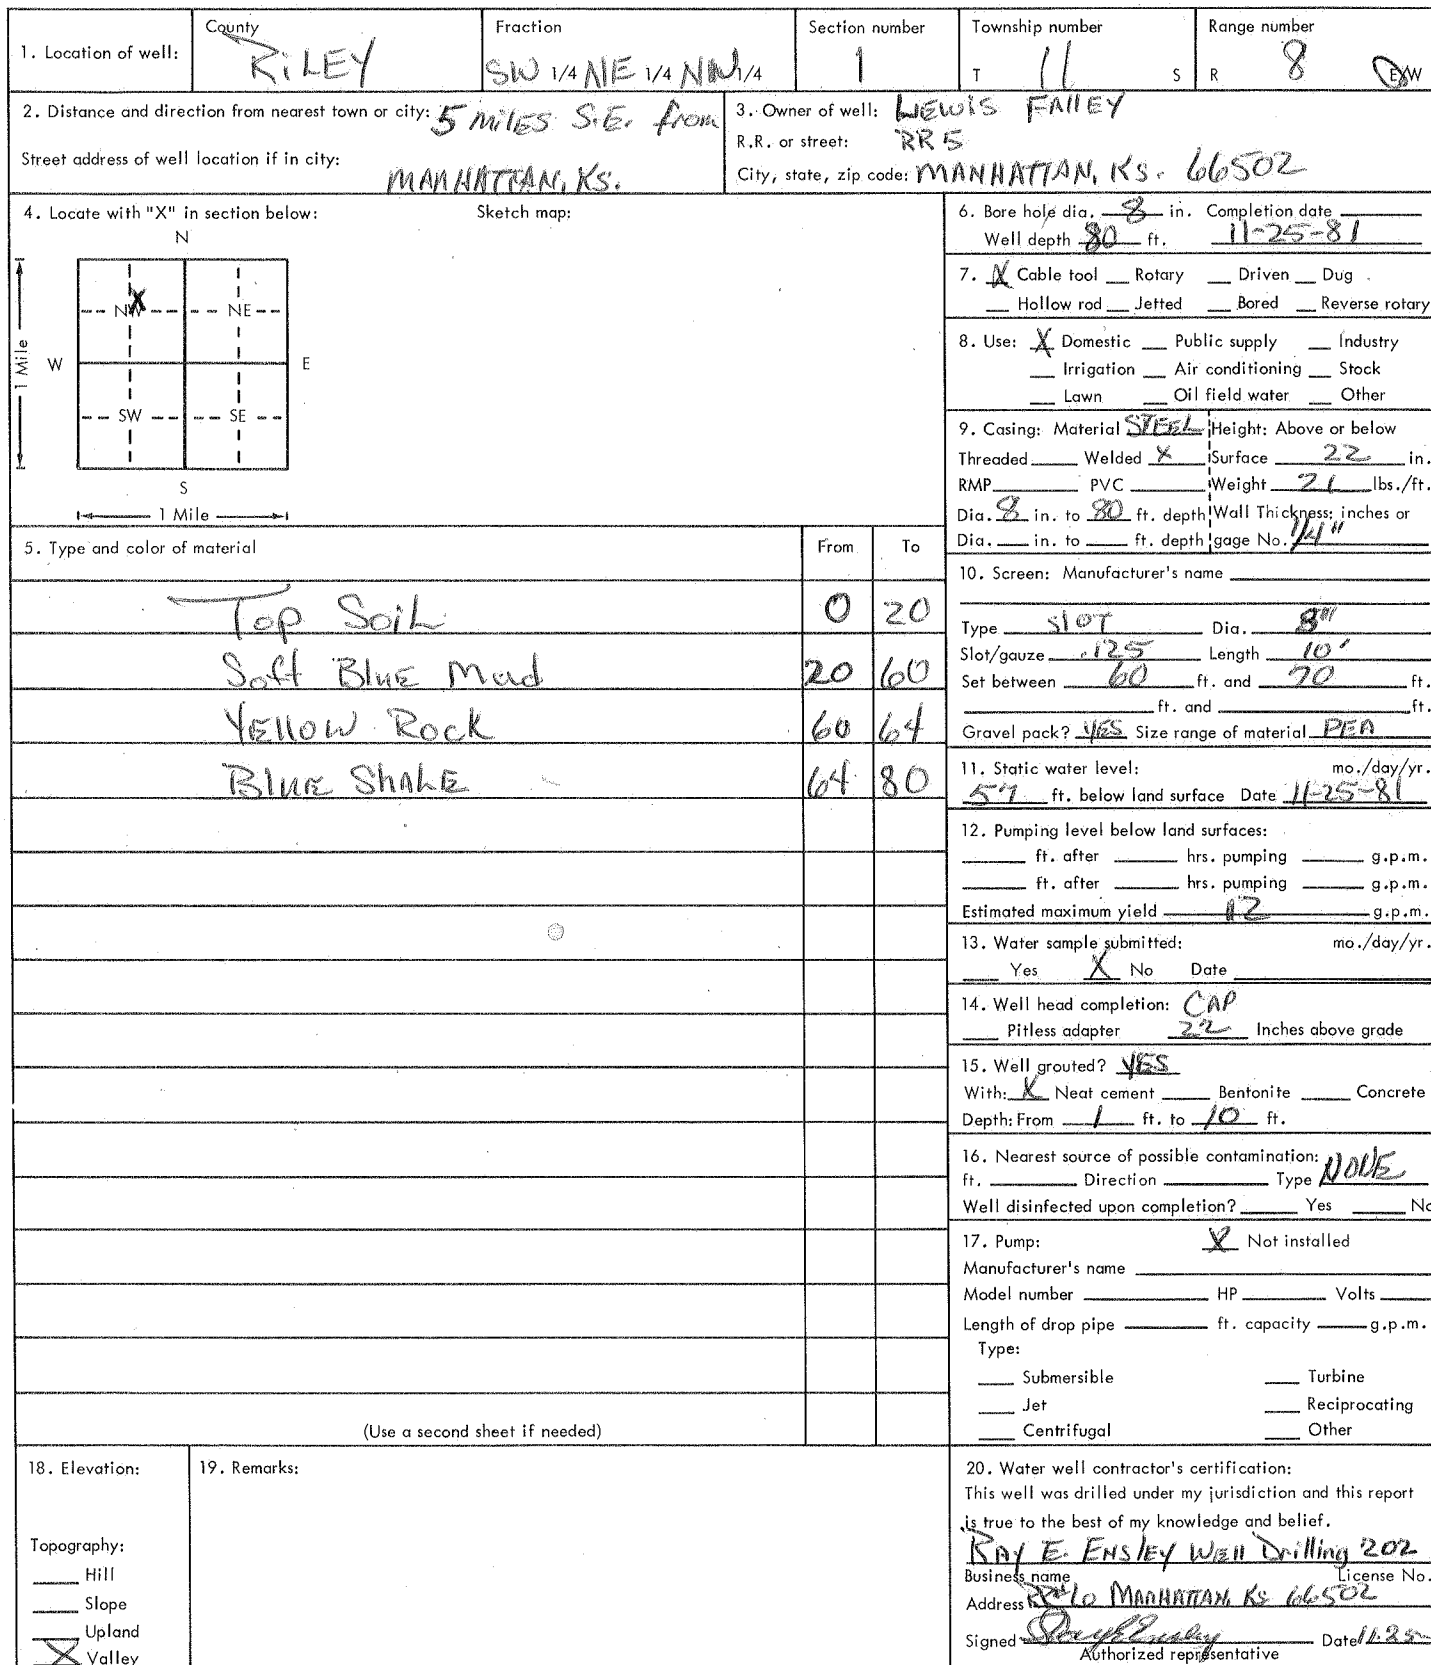 1. Location of well:
County
RiLEY
Fraction
SW 1/4 NE 1/4 NW 1/4
Section number
1
Township number
T 11 S
Range number
R 8 E/W
2. Distance and direction from nearest town or city: 5 MilES S.E. from
Street address of well location if in city:
MANHATTAN, KS.
3. Owner of well: LEWIS FAILEY
R.R. or street: RR 5
City, state, zip code: MANHATTAN, KS. 66502
4. Locate with "X" in section below:
Sketch map:
N
X
NW NE
W E
1 Mile
SW SE
S
1 Mile
5. Type and color of material From To
Top SoiL 0 20
Soft BluE Mud 20 60
YEllow Rock 60 64
BluE ShALE 64 80
(Use a second sheet if needed)
6. Bore hole dia. 8 in. Completion date
Well depth 80 ft. 11-25-81
7. X Cable tool Rotary Driven Dug
Hollow rod Jetted Bored Reverse rotary
8. Use: X Domestic Public supply Industry
Irrigation Air conditioning Stock
Lawn Oil field water Other
9. Casing: Material STEEL Height: Above or below
Threaded Welded X Surface 22 in.
RMP PVC Weight 21 lbs./ft.
Dia. 8 in. to 80 ft. depth Wall Thickness: inches or
Dia. in. to ft. depth gage No. 1/4"
10. Screen: Manufacturer's name
Type SlOT Dia. 8"
Slot/gauze .125 Length 10'
Set between 60 ft. and 70 ft.
ft. and ft.
Gravel pack? YES Size range of material PEA
11. Static water level: mo./day/yr.
57 ft. below land surface Date 11-25-81
12. Pumping level below land surfaces:
ft. after hrs. pumping g.p.m.
ft. after hrs. pumping g.p.m.
Estimated maximum yield 12 g.p.m.
13. Water sample submitted: mo./day/yr.
Yes X No Date
14. Well head completion: CAP
Pitless adapter 22 Inches above grade
15. Well grouted? YES
With: X Neat cement Bentonite Concrete
Depth: From 1 ft. to 10 ft.
16. Nearest source of possible contamination:
ft. Direction Type NONE
Well disinfected upon completion? Yes No
17. Pump: X Not installed
Manufacturer's name
Model number HP Volts
Length of drop pipe ft. capacity g.p.m.
Type:
Submersible Turbine
Jet Reciprocating
Centrifugal Other
18. Elevation:
Topography:
Hill
Slope
Upland
X Valley
19. Remarks:
20. Water well contractor's certification:
This well was drilled under my jurisdiction and this report
is true to the best of my knowledge and belief.
RAY E. ENSlEY WEll Drilling 202
Business name License No.
Address MANHATTAN, KS 66502
Signed Ray E Ensley Date 11-25-
Authorized representative